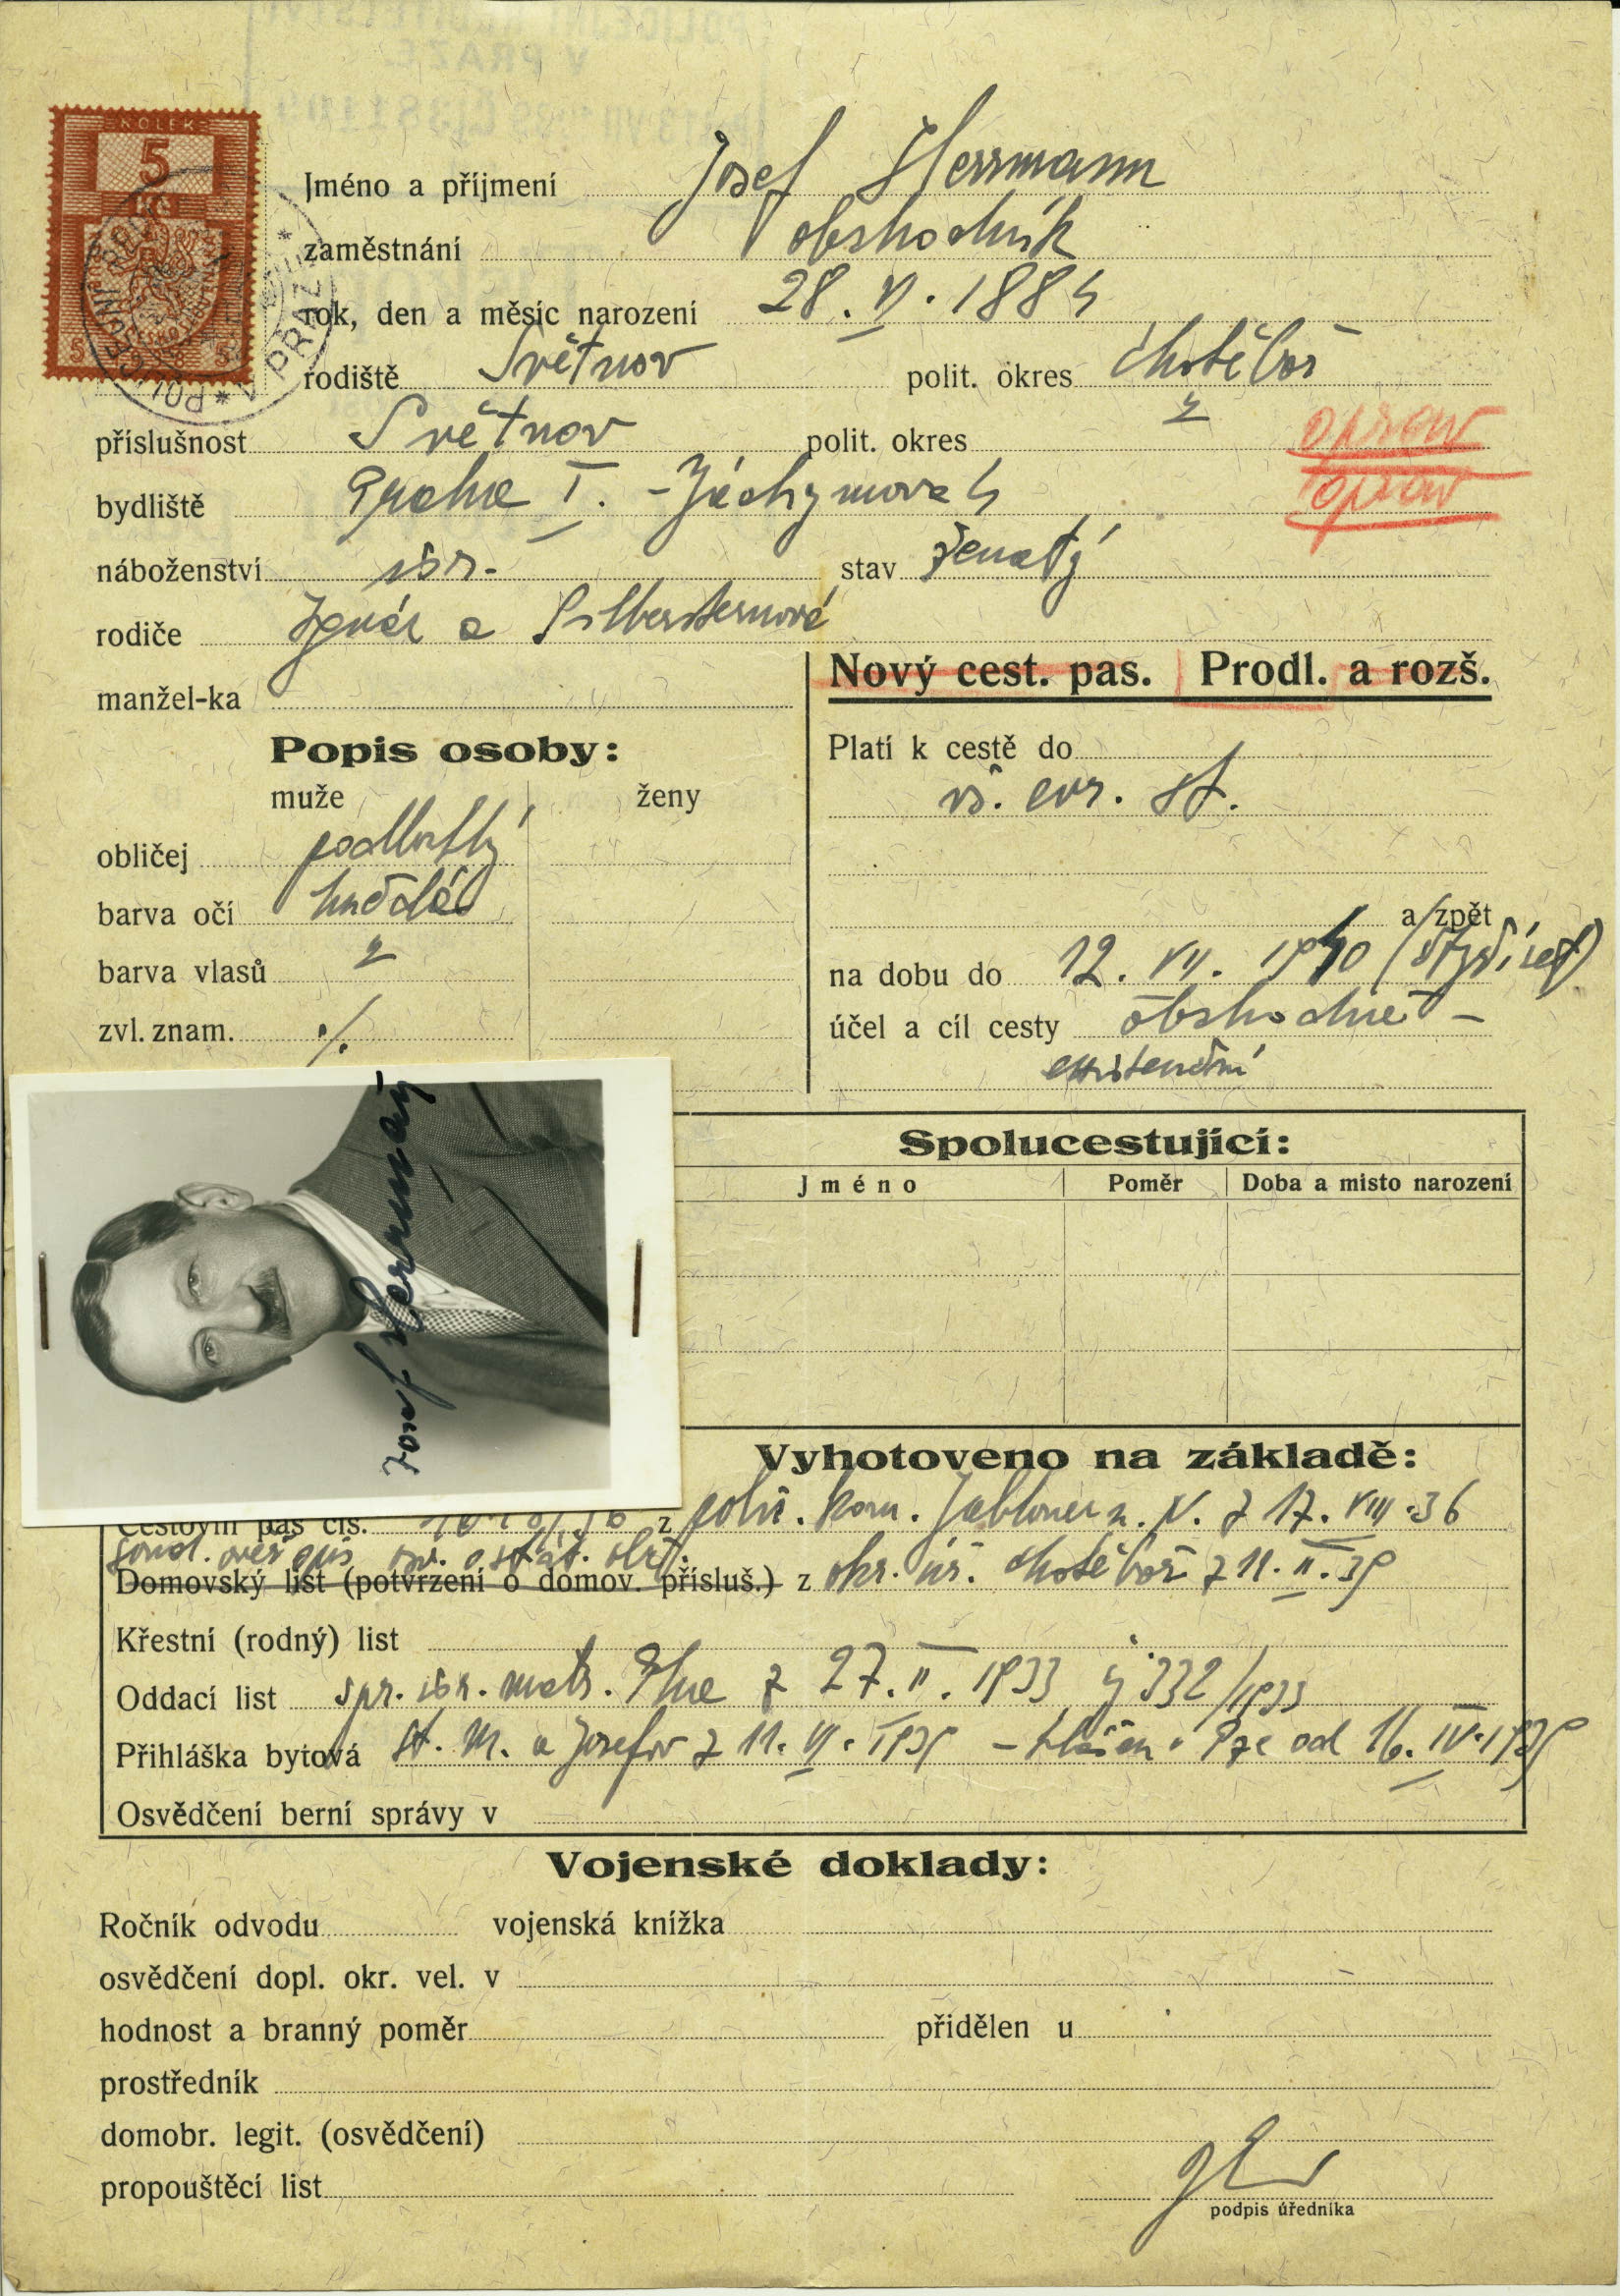 KOLEK
5
Kč
5 5
POLICEJNÍ
V PRAZE
Jméno a příjmení Josef Herrmann
zaměstnání obchodník
rok, den a měsíc narození 28. VI. 1884
rodiště Světnov polit. okres Chotěboř
příslušnost Světnov polit. okres "
oprav
bydliště Praha I. - Jáchymova 4
oprav
náboženství isr. stav ženatý
rodiče Ignác a Silbersternová
manžel-ka
Nový cest. pas. Prodl. a rozš.
Popis osoby:
muže ženy
obličej podlouhlý
barva očí hnědé
barva vlasů "
zvl. znam. ./.
Platí k cestě do
vš. evr. st.
a zpět
na dobu do 12. VII. 1940 (čtyřicet)
účel a cíl cesty obchodně -
existenční
Josef Herrmann
Spolucestující:
Jméno Poměr Doba a misto narození
Vyhotoveno na základě:
Cestovní pas čís. z polic. kom. Jablonec n. N. z 17. VIII. 36
soud. ověř. opis osv. o stát. obč.
Domovský list (potvrzení o domov. přísluš.) z okr. úř. Chotěboř z 11. II. 39
Křestní (rodný) list
Oddací list spr. isr. matr. Phe z 27. II. 1933 čj 332/1933
Přihláška bytová St. M. a Josefov z 11. VI. 1939 - hlášen v Pze od 16. IV. 1939
Osvědčení berní správy v
Vojenské doklady:
Ročník odvodu vojenská knížka
osvědčení dopl. okr. vel. v
hodnost a branný poměr přidělen u
prostředník
domobr. legit. (osvědčení)
propouštěcí list
podpis úředníka